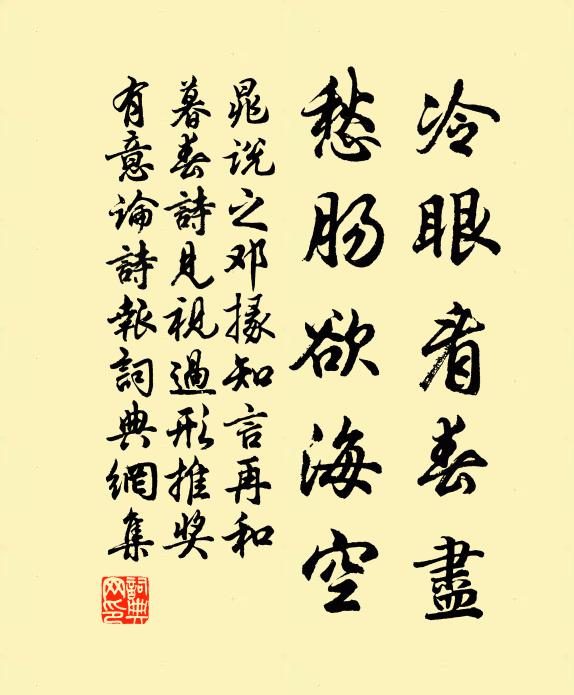 冷眼看春盡
愁肠欲海空
晁说之邓掾知言再和
暮春詩見視過形推奖
有意論詩報詞典網集
詞典网印